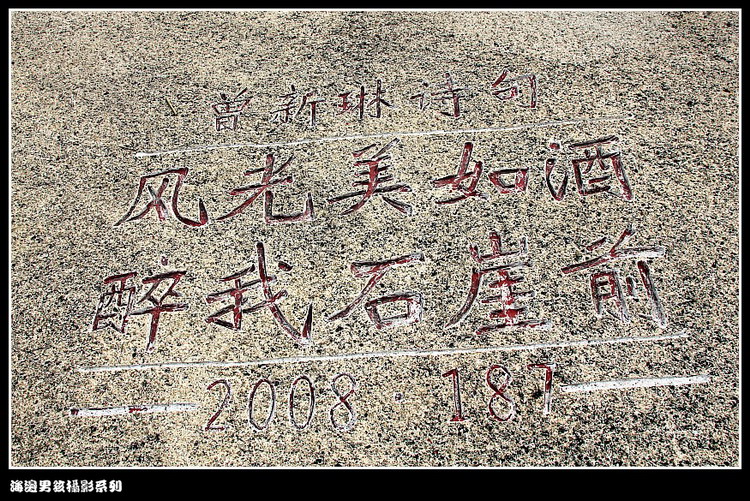 曾新琳诗句
风光美如酒
醉我石崖前
2008·187
海边男孩摄影系列